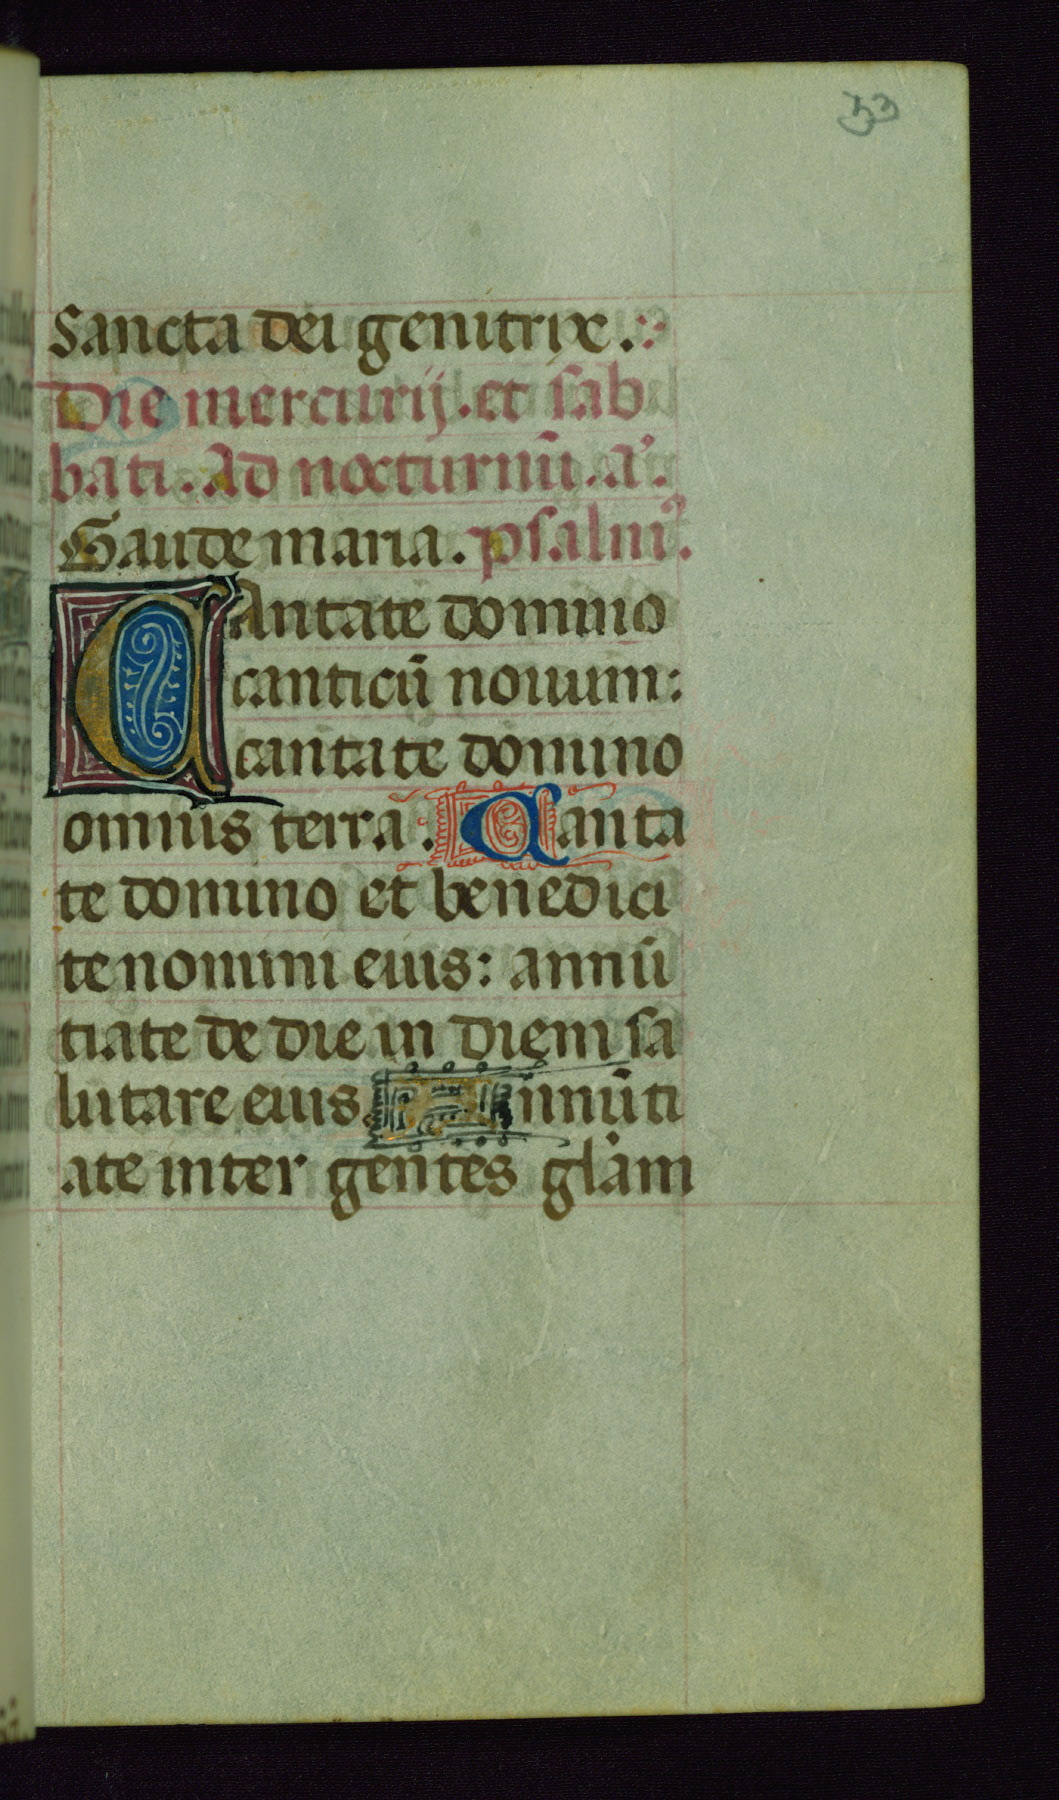 33
Sancta dei genitrix.
Die mercurij. et sab
bati. Ad nocturnū. a͛.
Gaude maria. psalm͛.
Cantate domino
canticū nouum:
cantate domino
omnis terra. Canta
te domino et benedici
te nomini eius: annū
tiate de die in diem sa
lutare eius. Annūti
ate inter gentes gl̄am